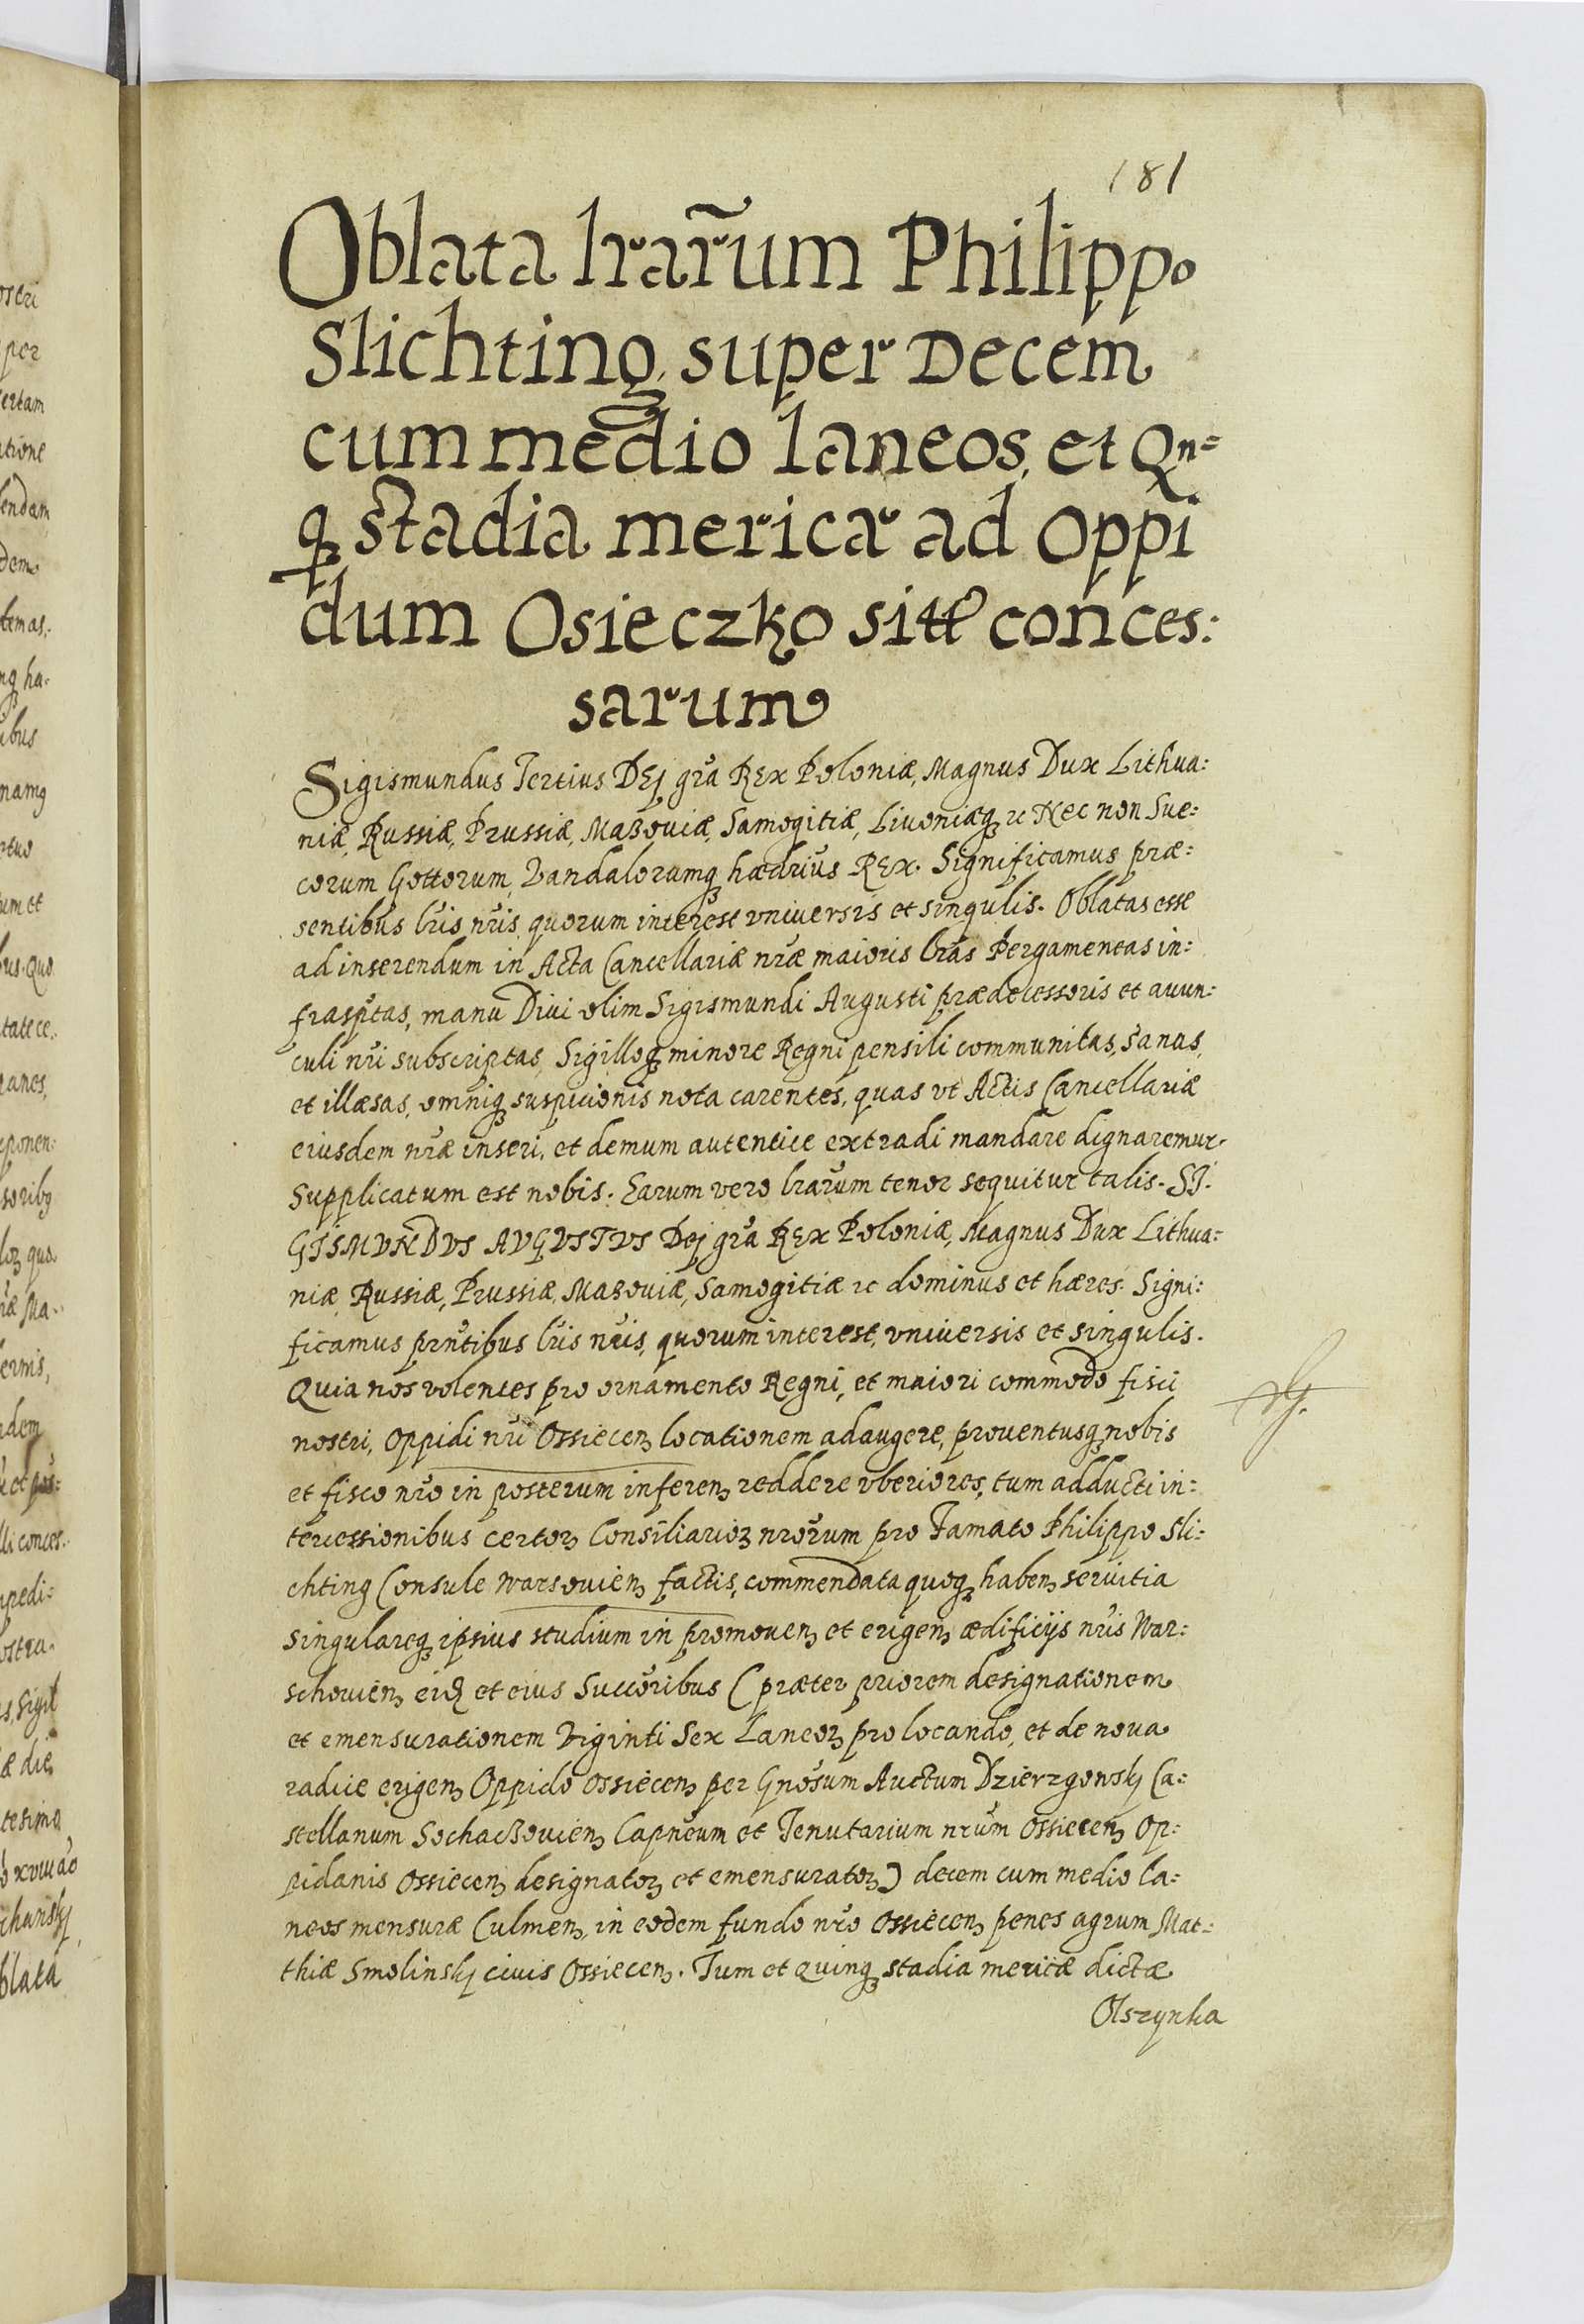 181
Oblata lrar̃um Philippo
Slichting, super Decem
cum medio laneos, et Qn=
qꝫ stadia mericar ad Oppi
dum Osieczko sitt conces:
sarum
Sigismundus Tertius DEj gr̃a REx Poloniæ, Magnus Dux Lithua:
niæ, Russiæ, Prussiæ, Mazouiæ, Samogitiæ, Liuoniæqꝫ ꝛc Nec non Sue:
corum Gottorum, Vandalorumqꝫ hædrius REx. Significamus præ:
sentibus lr̃is nr̃is, quorum interest vniuersis et singulis. Oblatas esse
ad inserendum in Acta Cancellariæ nr̃æ maioris lr̃as Pergameneas in:
frasp̃tas, manu Diui olim Sigismundi Augusti prædecessoris et auun:
culi nr̃i subscriptas, Sigilloqꝫ minore Regni pensili communitas, sanas,
et illæsas, omniqꝫ suspicionis nota carentes, quas vt Actis Cancellariæ
eiusdem nr̃æ inseri, et demum autentice extradi mandare dignaremur.
Supplicatum est nobis. Earum vero lrar̃um tenor sequitur talis. SJ:
GJSMVNDVS AVGVSTVS Dej gr̃a REx Poloniæ, Magnus Dux Lithua:
niæ, Russiæ, Prussiæ, Mazouiæ, Samogitiæ ꝛc dominus et hæres. Signi:
ficamus prñtibus lr̃is nr̃is, quorum interest, vniuersis et singulis.
Quia nos volentes pro ornamento Regni, et maiori commodo fisci
nostri, Oppidi nr̃i Ossiecenꝫ locationem adaugere, prouentusqꝫ nobis
et fisco nr̃o in posterum inferenꝫ reddere vberiores, tum adducti in:
tercessionibus certorꝫ Consiliariorꝫ nror̃um pro Famato Philippo Sli:
chting Consule Warsouienꝫ factis, commendata quoqꝫ habenꝫ seruitia
singulareqꝫ ipsius studium in promouenꝫ et erigenꝫ ædificijs nr̃is War:
schouienꝫ eidꝫ et eius Succoribus (præter priorem designationem
et emensurationem Viginti Sex Laneorꝫ pro locando, et de noua
radice erigenꝫ Oppido Ossiecenꝫ per Gnosum Auctum Dzierzgonskj Ca:
stellanum Sochaczouienꝫ Capneum et Tenutarium nr̃um Ossiecenꝫ Op:
pidanis Ossiecenꝫ designatorꝫ et emensuratorꝫ) decem cum medio la:
neos mensuræ Culmenꝫ, in eodem fundo nr̃o Ossiecenꝫ penes agrum Mat:
thiæ Smolinskj ciuis Ossiecenꝫ. Tum et quinqꝫ stadia mericæ dictæ
Olszynka